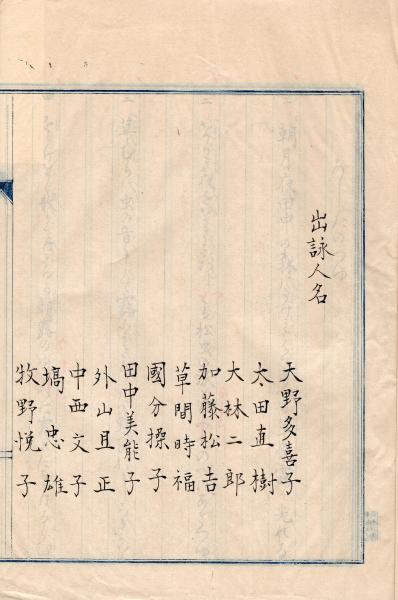 出詠人名
天野多喜子
太田直樹
大林二郎
加藤松吉
草間時福
國分操子
田中美能子
外山且正
中西文子
塙忠雄
牧野悦子